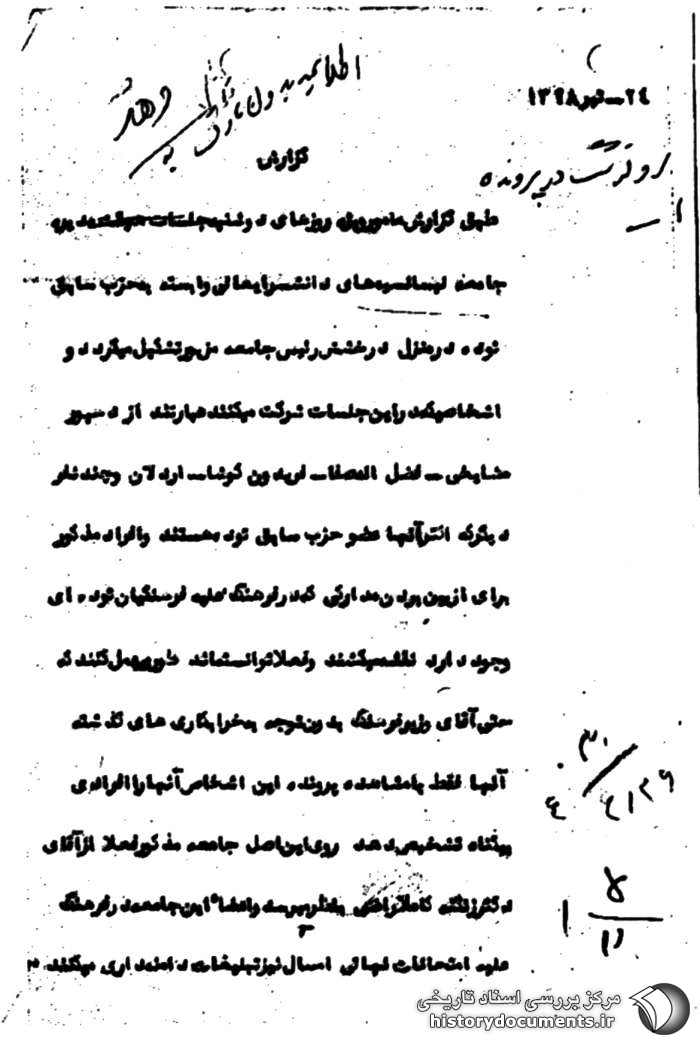 اطلاعیه بدون
۲۴ـ تیر ۱۳۲۸
گزارش
رونوشت در پرونده
طبق گزارش مامورویژه روزهای دوشنبه جلسات
جامعه لیسانسیه‌های دانشسرایعالی وابسته بحزب سابق
توده در منزل درخشش رئیس جامعه مزبور تشکیل میگردد و
اشخاصیکه در این جلسات شرکت میکنند عبارتند از
مشایخی ـ فضل اله صفا ـ فریدون ـ اردلان و چند نفر
دیگر که اکثر آنها عضو حزب سابق توده هستند و افراد مذکور
برای از بین بردن مدارکی که در فرهنگ علیه فرهنگیان توده ای
وجود دارد نقشه میکشند و فعلا توانسته‌اند طوری عمل کنند که
حتی آقای وزیر فرهنگ بدون توجه بخرابکاری های گذشته
آنها فقط با مشاهده پرونده این اشخاص آنها را افرادی
بیگناه تشخیص بدهد روی این اصل جامعه مذکور فعلا از آقای
دکتر زنگنه کاملا راضی بنظر میرسد و اعضاء این جامعه در فرهنگ
علیه امتحانات نهائی امسال نیز تبلیغات دامنه داری میکنند
۳۰
۴/۲۶
۱
مرکز بررسی اسناد تاریخی
historydocuments.ir